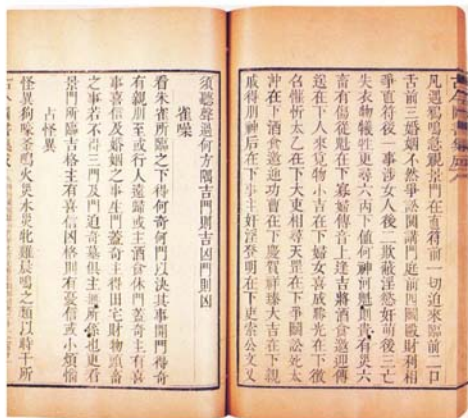 凡遇鴉鳴急視景門在直符前一切迫來臨前二口
舌前三婚姻不然爭訟鬪講門庭前四鬪毆財利相
爭直符後一事涉女人後二欺蔽淫慾奸前後三亡
失衣物犧牲更尋六丙下值何神何
畜有傷從魁在下寡婦傳音上逢吉將酒食邀迎傳
送在下人來覓物小吉在下婦女喜成勝光在下徵
召催忻太乙在下大吏相尋天罡在下爭鬪訟死太
沖在下酒食邀迎功曹在下慶賀祥臻大吉在下親
戚得別神后在下事主奸淫登明在下吏索公文又
須聽聲過何方隅吉門則吉凶門則凶
雀噪
看朱雀所臨之下得何奇何門以決其事開門得奇
有親朋至或行人遠歸或主酒食休門蓋奇主有喜
事喜信及婚姻之事生門蓋奇主得田宅財物頭畜
之事若不得三門及門迫奇墓俱主無所係也更看
景門所臨吉格主有喜信凶格則有憂信或小煩惱
占怪異
怪異狗嗥釜鳴火災水災牝雞晨鳴之類以時干所